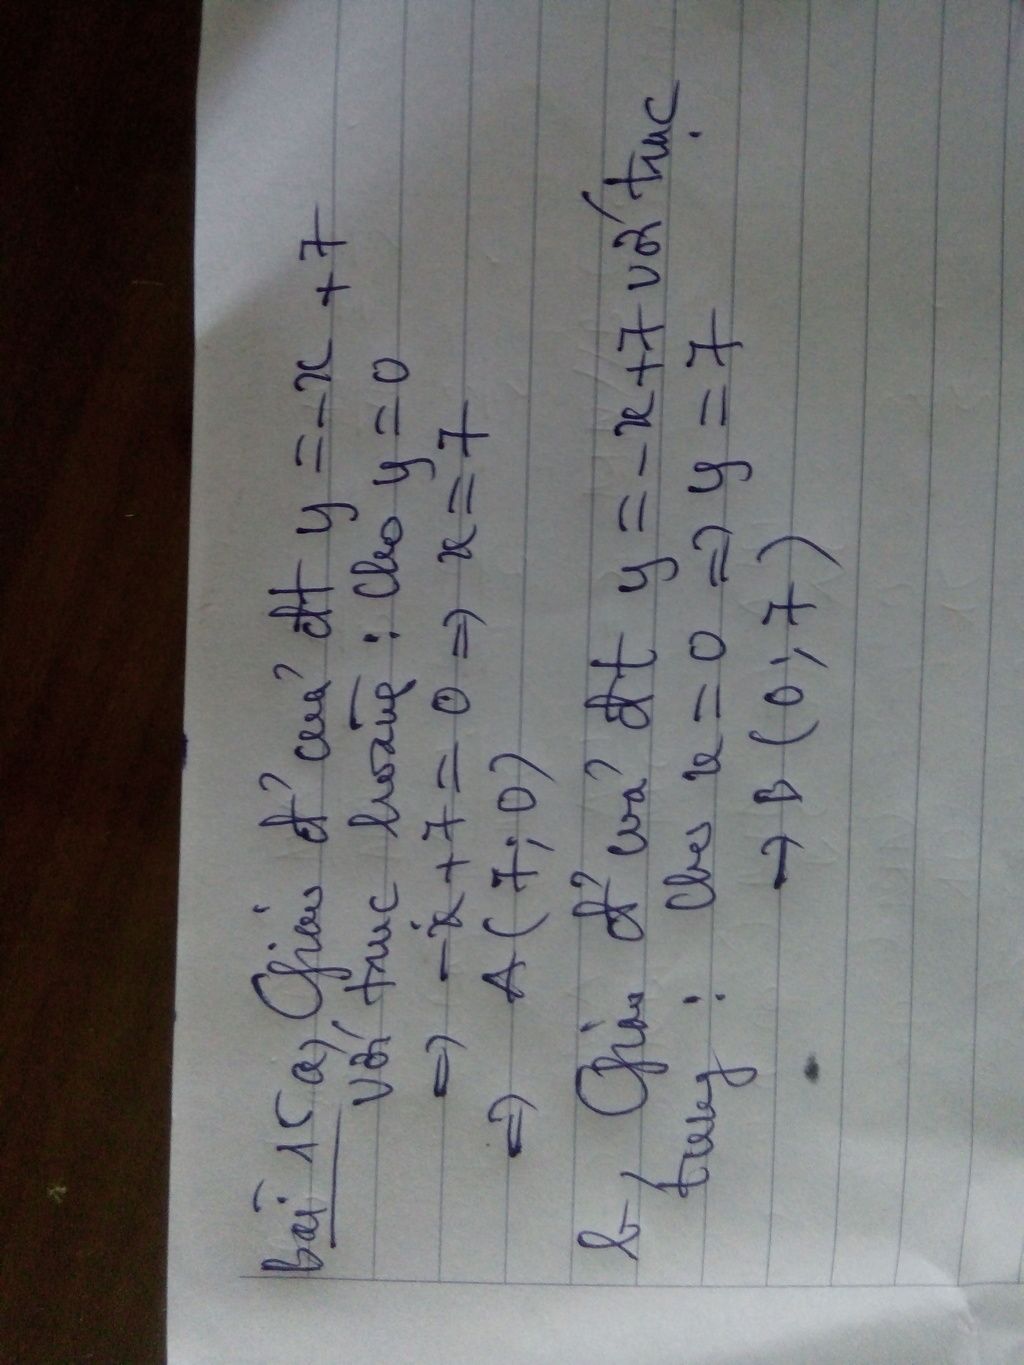 Bài 15 a, Giao đ' của đt y = -x + 7
với trục hoành : Cho y = 0
⇒ -x + 7 = 0 ⇒ x = 7
⇒ A ( 7 ; 0 )
b, Giao đ' của đt y = -x + 7 với trục
tung : Cho x = 0 ⇒ y = 7
→ B ( 0 ; 7 )